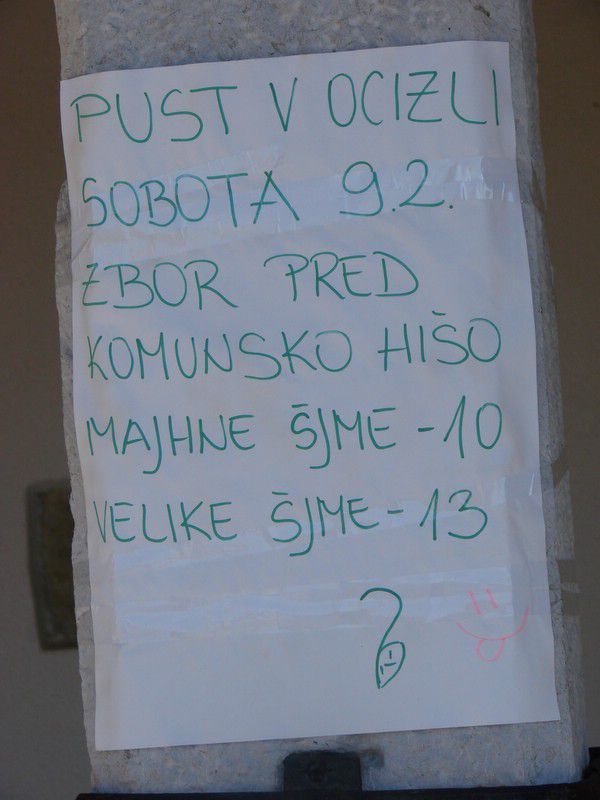 PUST V OCIZLI
SOBOTA 9.2.
ZBOR PRED
KOMUNSKO HIŠO
MAJHNE ŠJME - 10
VELIKE ŠJME - 13